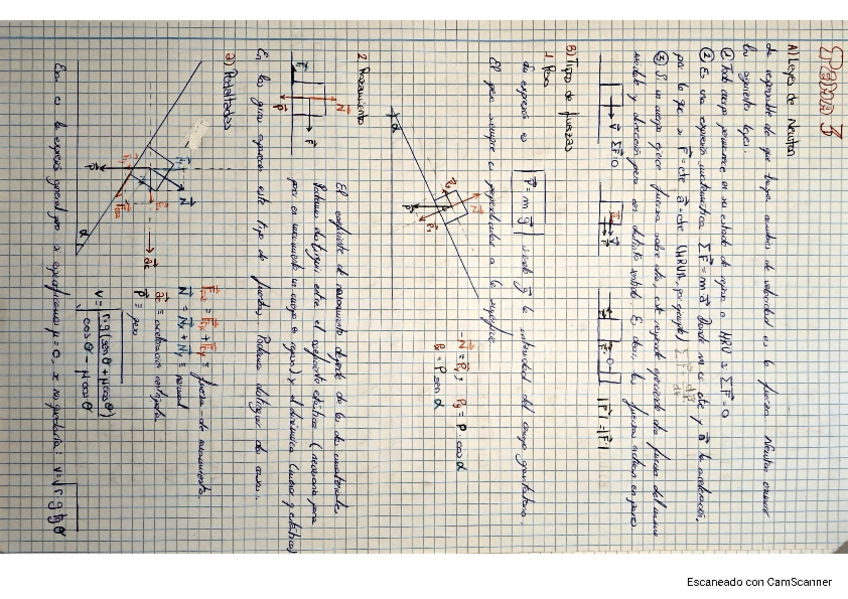 Tema 3
A) Leyes de Newton
de responsable de que haya cambios de velocidad es la fuerza. Newton enunció
las siguientes leyes:
① Todo cuerpo permanece en su estado de reposo o MRU si ΣF⃗=0
② Es una expresión matemática ΣF⃗=m a⃗. Donde m es cte y a⃗ la aceleración,
por lo que si F⃗=cte a⃗=cte (MRUA, por ejemplo)
③ Si un cuerpo ejerce fuerza sobre otro, este responde ejerciendo otra fuerza del mismo
módulo y dirección pero en distinto sentido. Es decir, las fuerzas actúan en pares.
V⃗ ΣF⃗=0
|F⃗|=|F⃗|
B) Tipo de fuerzas
1. Peso
da expresión es P⃗=m g⃗ siendo g⃗ la intensidad del campo gravitatorio.
El peso siempre es perpendicular a la superficie.
N⃗
α
-N⃗=P⃗y; Py=P·cosα
Px=P senα
2 Rozamiento
N⃗
F⃗
P⃗
El coeficiente de rozamiento depende de los dos materiales.
Podemos distinguir entre el coeficiente estático (necesario para
En los giros aparece este tipo de fuerzas. Podemos distinguir dos casos:
a) Peraltados
N⃗
α
= fuerza de rozamiento
N⃗ = N⃗x+N⃗y = normal
a⃗c = aceleración centrípeta
P⃗ = peso
V=√(r·g(senθ+μcosθ)/(cosθ-μcosθ))
Esa es la expresión general pero si especificamos μ=0, si no produciría: V=√(r g tgθ)
Escaneado con CamScanner